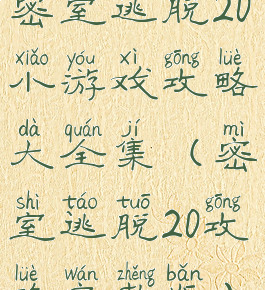 密室逃脱20
xiǎo yóu xì gōng lüè
小游戏攻略
dà quán jí mì
大全集(密
shì táo tuō gōng
室逃脱20攻
lüè wán zhěng bǎn